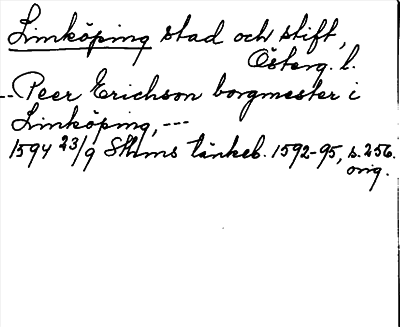 Linköping stad och stift,
Österg. l.
--Peer Erichson borgmester i
Linköping, ---
1594 23/9 Sthms tänkeb. 1592-95, s. 256.
orig.